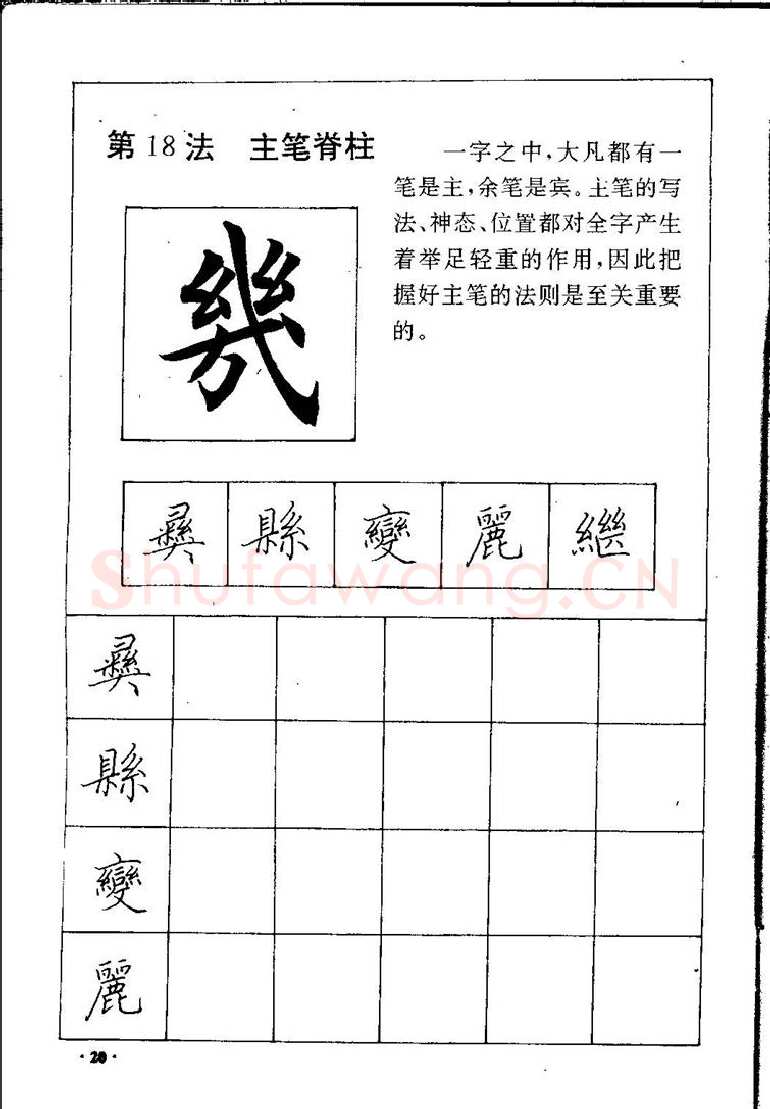 第18法 主笔脊柱
一字之中,大凡都有一
笔是主,余笔是宾。主笔的写
法、神态、位置都对全字产生
着举足轻重的作用,因此把
握好主笔的法则是至关重要
的。
幾
彝 縣 變 麗 繼
Shufawang.CN
彝
縣
變
麗
·20·